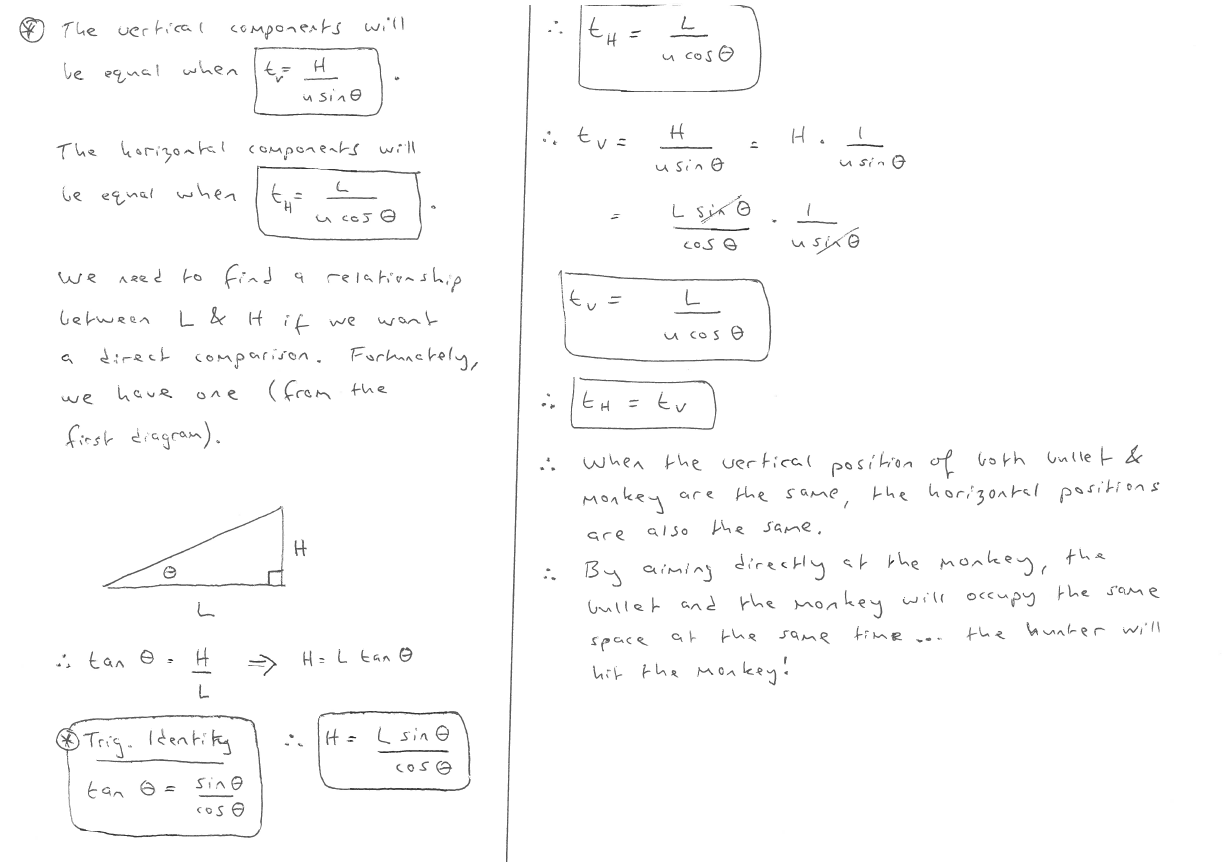 ⊛ The vertical components will
be equal when t_v = H / u sin θ .
The horizontal components will
be equal when t_H = L / u cos θ .
We need to find a relationship
between L & H if we want
a direct comparison. Fortunately,
we have one (from the
first diagram).
θ
H
L
∴ tan θ = H / L ⇒ H = L tan θ
⊛ Trig. Identity
tan θ = sin θ / cos θ
∴ H = L sin θ / cos θ
∴ t_H = L / u cos θ
∴ t_v = H / u sin θ = H . 1 / u sin θ
= L sin θ / cos θ . 1 / u sin θ
t_v = L / u cos θ
∴ t_H = t_v
∴ When the vertical position of both bullet &
monkey are the same, the horizontal positions
are also the same.
∴ By aiming directly at the monkey, the
bullet and the monkey will occupy the same
space at the same time... the hunter will
hit the monkey!